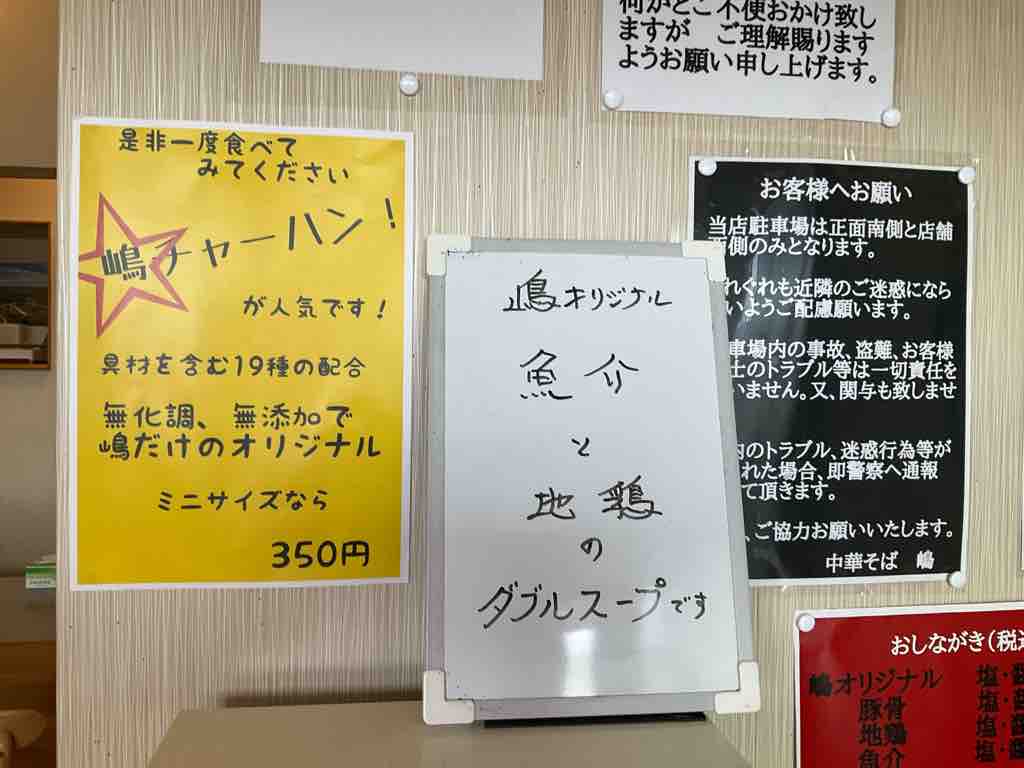 是非一度食べて
みてください
嶋チャーハン！
が人気です！
具材を含む19種の配合
無化調、無添加で
嶋だけのオリジナル
ミニサイズなら
350円
嶋オリジナル
魚介
と
地鶏
の
ダブルスープです
何かとご不便おかけ致し
ますが　ご理解賜ります
ようお願い申し上げます。
お客様へお願い
当店駐車場は正面南側と店舗
側のみとなります。
れぐれも近隣のご迷惑になら
いようご配慮願います。
車場内の事故、盗難、お客様
士のトラブル等は一切責任を
いません。又、関与も致しませ
内のトラブル、迷惑行為等が
れた場合、即警察へ通報
て頂きます。
、ご協力お願いいたします。
中華そば　嶋
おしながき（税込
嶋オリジナル　塩・醤
豚骨　塩・醤
地鶏　塩・醤
魚介　塩・醤